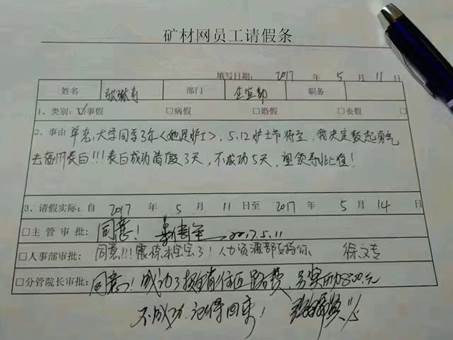 矿材网员工请假条
填写日期: 2017 年 5 月 11 日
姓名 部门 企宣部 职务
1、类别: ☑事假 □病假 □婚假 □丧假
2、事由 单恋大学同学3年(她是护士), 5.12护士节将至, 我决定鼓起勇气
去徐州表白!!! 表白成功请假3天, 不成功5天, 望领导批准!
3、请假实际: 自 2017 年 5 月 11 日至 2017 年 5 月 14 日
□主管审批: 同意! 2017.5.11
□人事部审批: 同意!!! 人力资源部
□分管院长审批: 同意! 成功了报销往返路费, 另奖励800元
不成功, 记得回来!